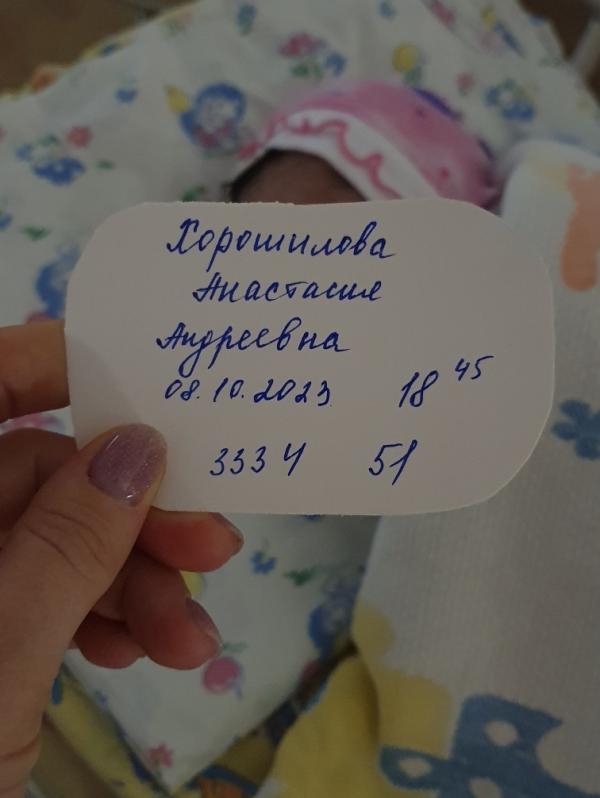 Хорошилова
Анастасия
Андреевна
08.10.2023 18 45
3334 51